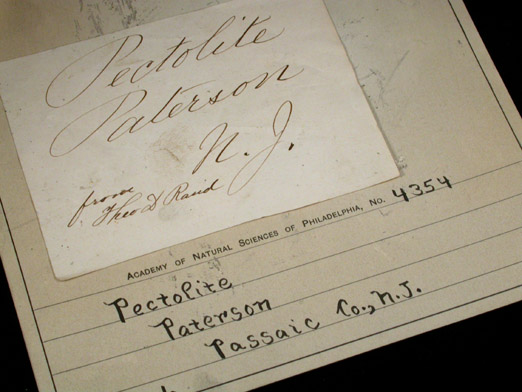 Pectolite
Paterson
N. J.
from
Theo D Rand
ACADEMY OF NATURAL SCIENCES OF PHILADELPHIA, NO. 4354
Pectolite
Paterson
Passaic Co., N.J.